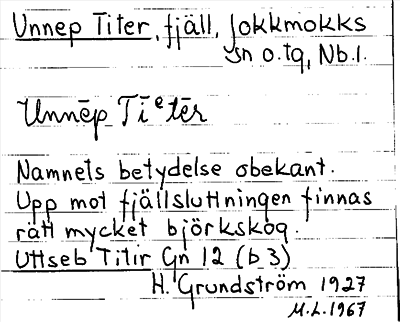 Unnep Titer, fjäll, Jokkmokks
sn o. tg, Nb. l.
Unnēp Tīᵉtēr
Namnets betydelse obekant.
Upp mot fjällsluttningen finnas
rätt mycket björkskog.
Uttseb Titir Gn 12 (b 3)
H. Grundström 1927
M.L. 1967